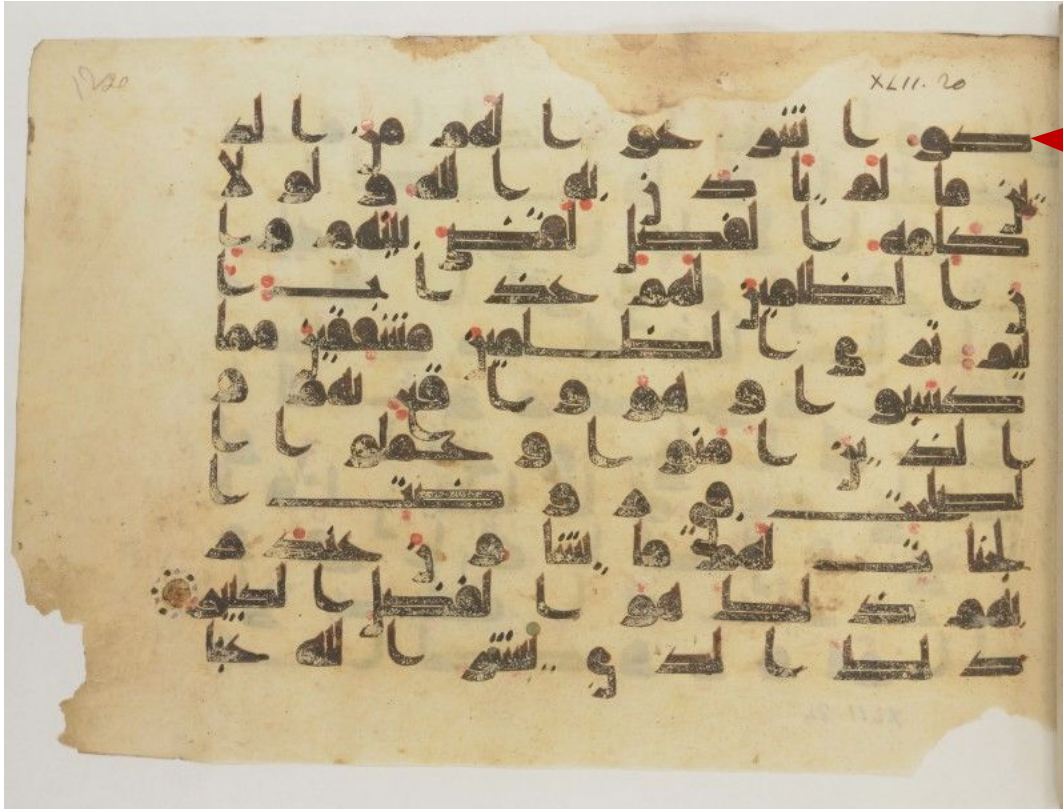 1220 XLII. 20
كوا شرعوا لهم من الد
ين ما لم يأذن به الله ولولا
كلمه الفصل لقضي بينهم وا
ن الظلمين لهم عذاب ا
ليم ترى الظلمين مشفقين مما
كسبوا وهو واقع بهم و
الذين امنوا وعملوا ا
لصلحت في روضت ا
لجنات لهم ما يشاون عند ر
بهم ذلك هو الفضل الكبير
ذلك الذي يبشر الله عبا